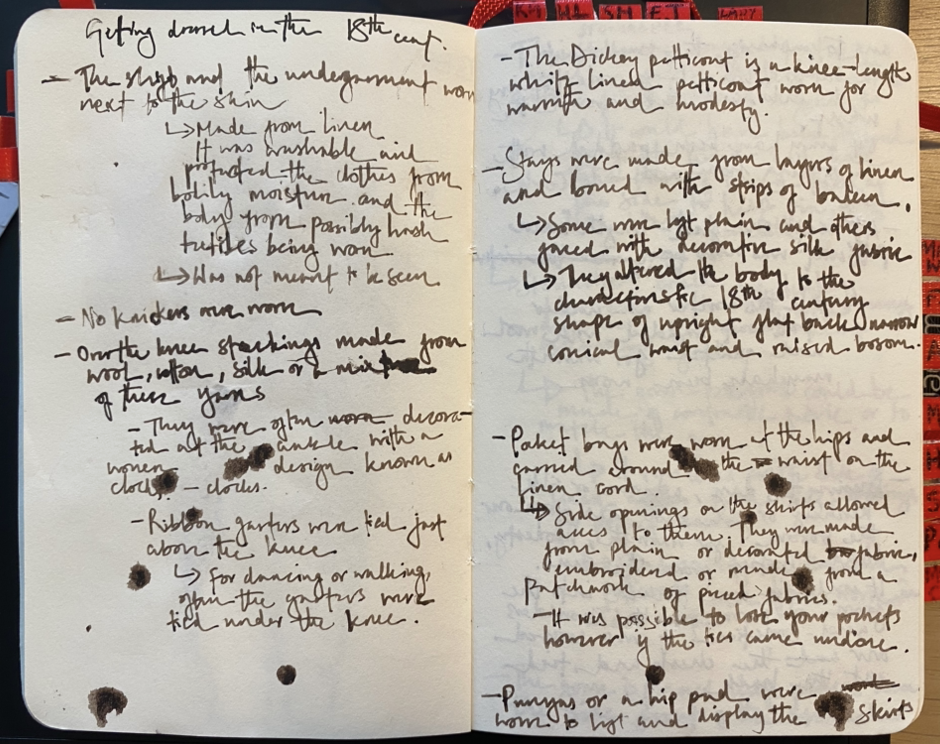 Getting dressed in the 18th cent.
- The shift and the undergarment worn
next to the skin
↳ Made from linen
It was washable and
protected the clothes from
bodily moisture and the
body from possibly harsh
textiles being worn
↳ Was not meant to be seen
- No knickers were worn
- Over the knee stockings made from
wool, cotton, silk or a mix
of these yarns
- They were often worn decora-
ted at the ankle with a
woven design known as
clocks. - clocks.
- Ribbon garters were tied just
above the knee
↳ For dancing or walking,
often the garters were
tied under the knee.
- The Dickey petticoat is a knee-length
white linen petticoat worn for
warmth and modesty.
- Stays were made from layers of linen
and boned with strips of baleen.
↳ Some were left plain and others
faced with decorative silk fabric
↳ They altered the body to the
characteristic 18th century
shape of upright flat back narrow
conical waist and raised bosom.
- Pocket bags were worn at the hips and
carried around the waist on the
linen cord.
↳ Side openings on the skirts allowed
access to them. They were made
from plain or decorated fabric,
embroidered or made from a
patchwork of pieced fabrics.
- It was possible to lose your pockets
however if the ties came undone.
- or a hip pad were
worn to lift and display the skirts
KM WA SH FJ LADY